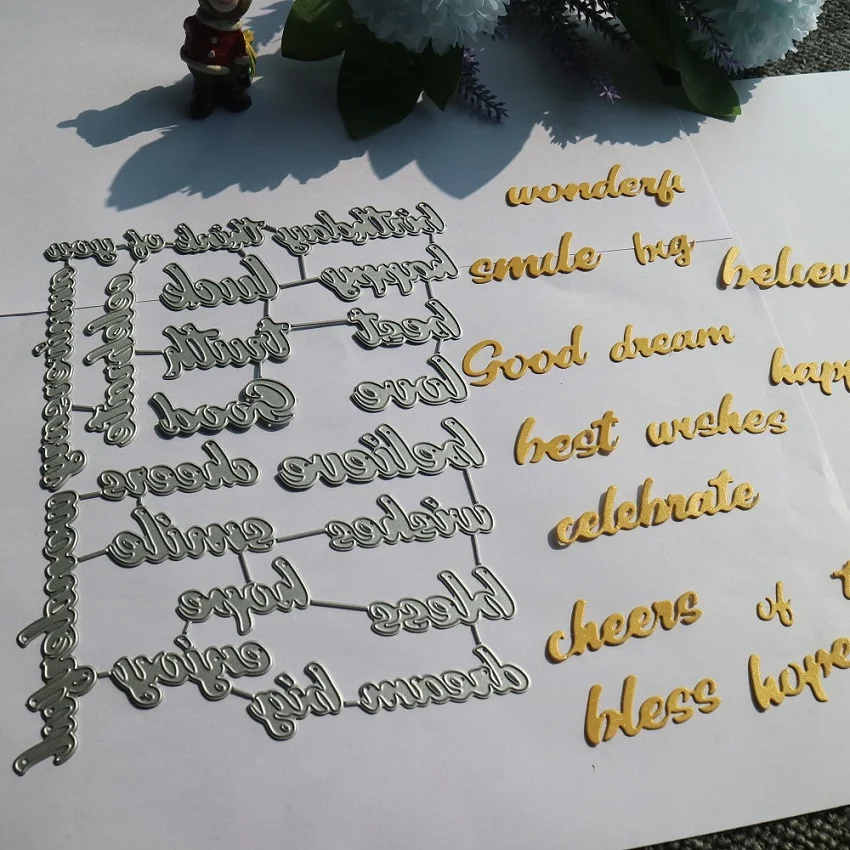 birthday think of you
happy luck
best truth
love Good
celebrate
anniversary
believe cheers
wishes smile
bless hope
dream big enjoy
wonderful
wonderfu
smile big believ
Good dream happ
best wishes
celebrate
cheers of t
bless hope